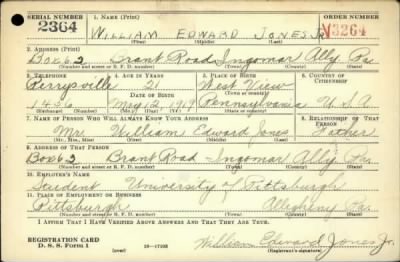 SERIAL NUMBER 1. NAME (Print) ORDER NUMBER
2364 WILLIAM EDWARD JONES Jr. V3264
(First) (Middle) (Last)
2. ADDRESS (Print)
Box 62 Brant Road Ingomar Ally Pa.
(Number and street or R. F. D. number) (Town) (County) (State)
3. TELEPHONE 4. AGE IN YEARS 5. PLACE OF BIRTH 6. COUNTRY OF CITIZENSHIP
Perrysville 21 West View
DATE OF BIRTH (Town or county)
1436 May 12 1919 Pennsylvania U.S.A.
(Exchange) (Number) (Mo.) (Day) (Yr.) (State or country)
7. NAME OF PERSON WHO WILL ALWAYS KNOW YOUR ADDRESS 8. RELATIONSHIP OF THAT PERSON
Mr. William Edward Jones Father
(Mr., Mrs., Miss) (First) (Middle) (Last)
9. ADDRESS OF THAT PERSON
Box 62 Brant Road Ingomar Ally Pa.
(Number and street or R. F. D. number) (Town) (County) (State)
10. EMPLOYER'S NAME
Student University of Pittsburgh
11. PLACE OF EMPLOYMENT OR BUSINESS
Pittsburgh Allegheny Pa.
(Number and street or R. F. D. number) (Town) (County) (State)
I AFFIRM THAT I HAVE VERIFIED ABOVE ANSWERS AND THAT THEY ARE TRUE.
REGISTRATION CARD
D. S. S. Form 1 (over) 16—17105 William Edward Jones Jr.
(Registrant's signature)